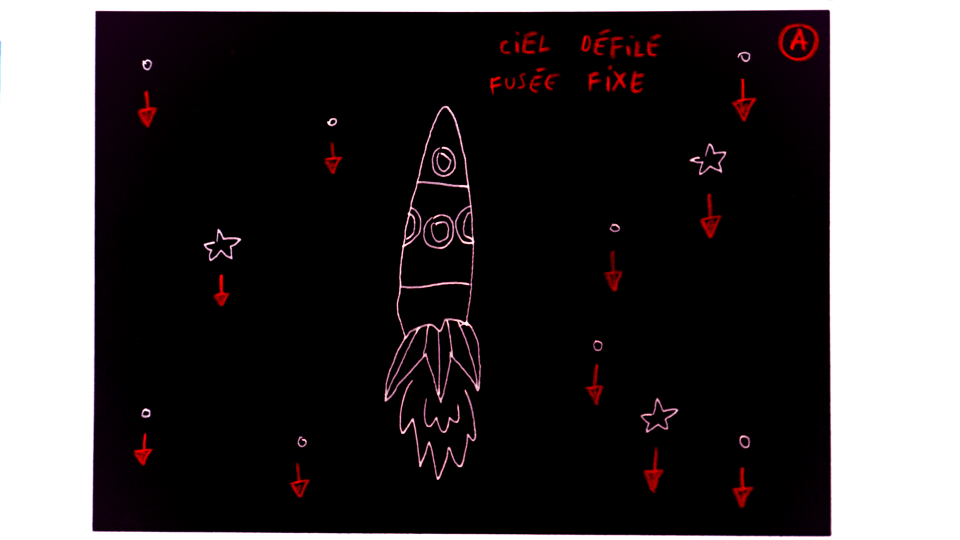 CIEL DÉFILÉ
FUSÉE FIXE
A